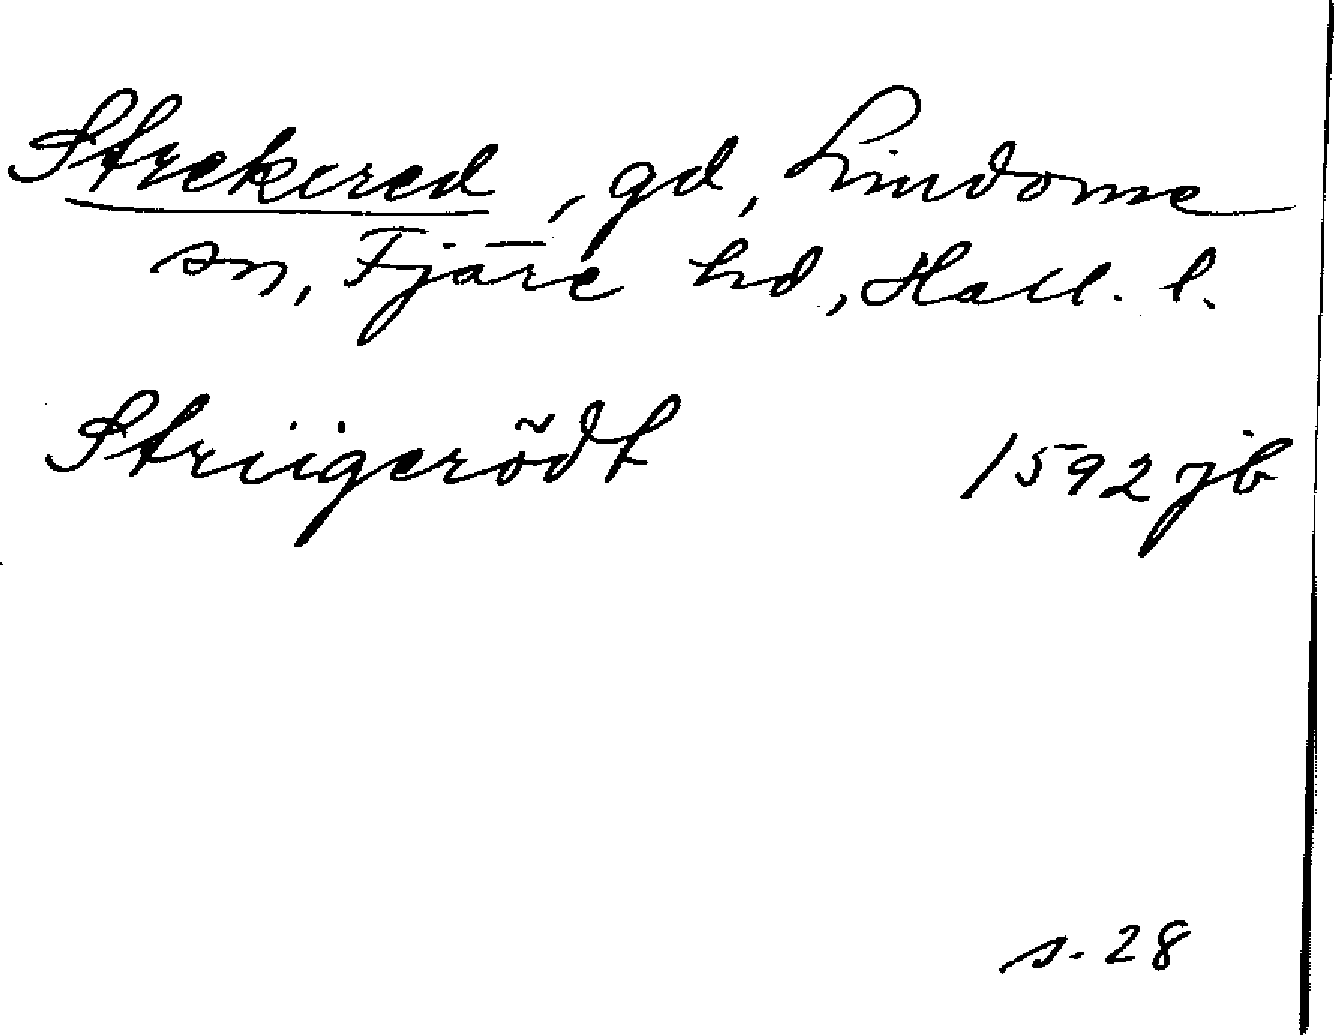 Strekered, gd, Lindome
sn, Fjäre hd, Hall. l.
Striigerödt 1592 jb
s. 28